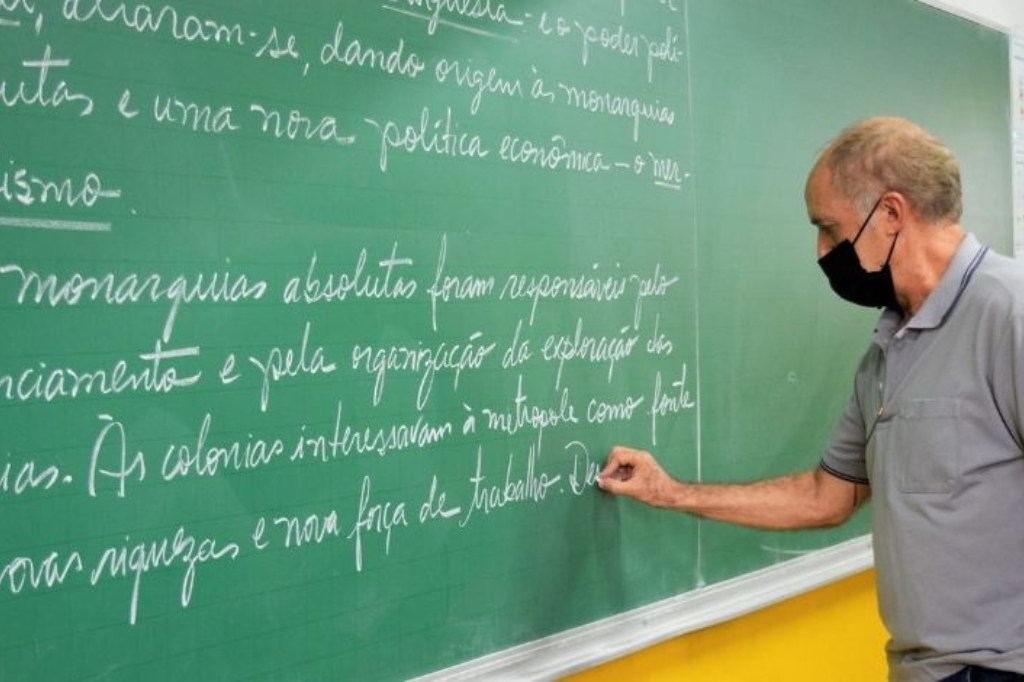 aliaram-se, dando origem às monarquias
e o poder polí-
utas e uma nova política econômica - o mer-
ismo.
monarquias absolutas foram responsáveis pelo
nciamento e pela organização da exploração das
ias. Às colonias interessavam à metropole como fonte
ovas riquezas e nova força de trabalho. De